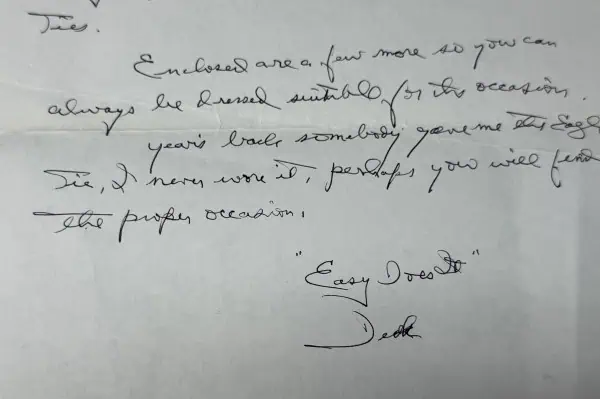 Ties.
Enclosed are a few more so you can
always be dressed suitibly for the occasion.
years back somebody gave me this Eagle
Tie, I never wore it, perhaps you will find
the proper occasion.
"Easy Does It"